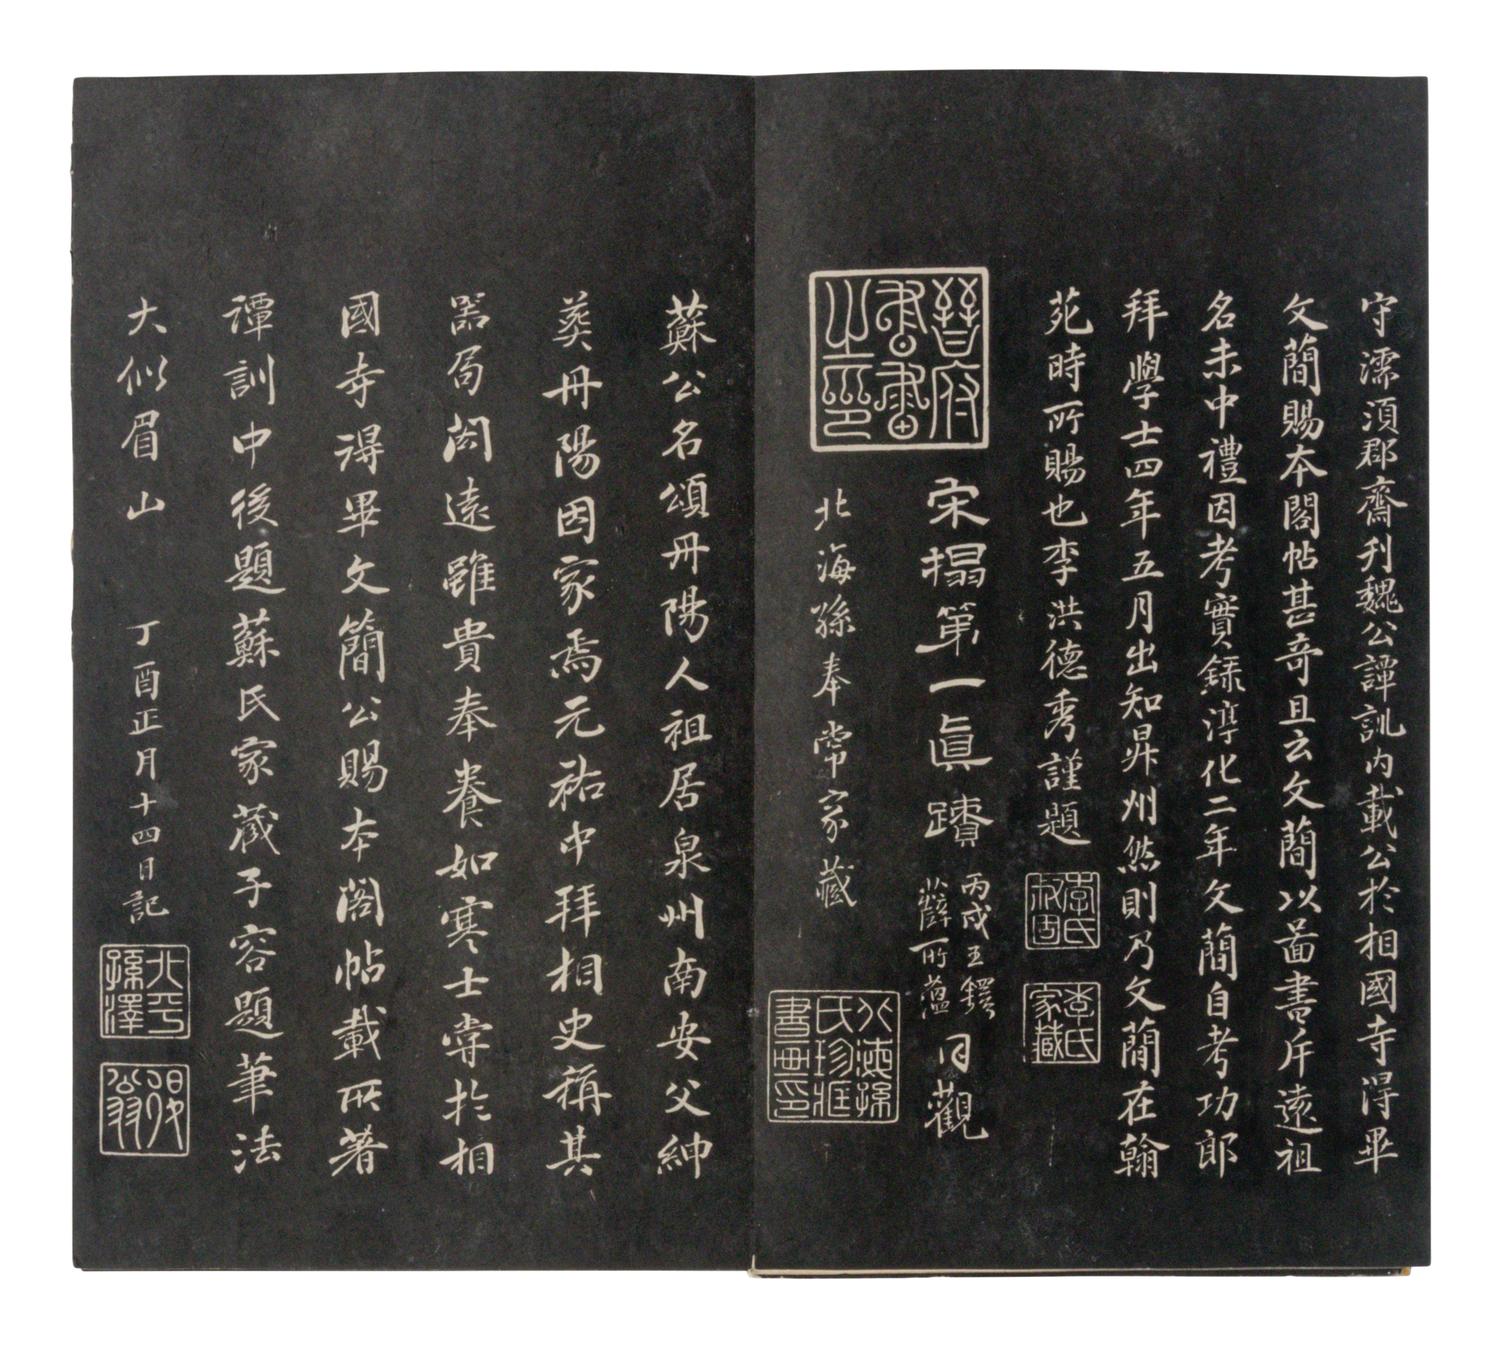 守濡須郡齋刊魏公譚訓内載公於相國寺得畢
文蕳賜本閣帖甚竒且云文蕳以啚書斥遠祖
名未中禮因考實録淳化二年文蕳自考功郎
拜學士四年五月出知昇州然則乃文蕳在翰
苑時所賜也李洪德秀謹題
李氏
李氏家藏
晉府書畫之印
宋搨第一眞蹟
丙戌王鐸
薛所蘊
同觀
北海孫奉常家藏
北海孫氏珍藏書画印
蘇公名頌丹陽人祖居泉州南安父紳
葬丹陽因家焉元祐中拜相史稱其
器局閎遠雖貴奉養如寒士嘗於相
國寺得畢文簡公賜本閣帖載所著
譚訓中後題蘇氏家藏子容題筆法
大似眉山
丁酉正月十四日記
北平孫澤
退翁